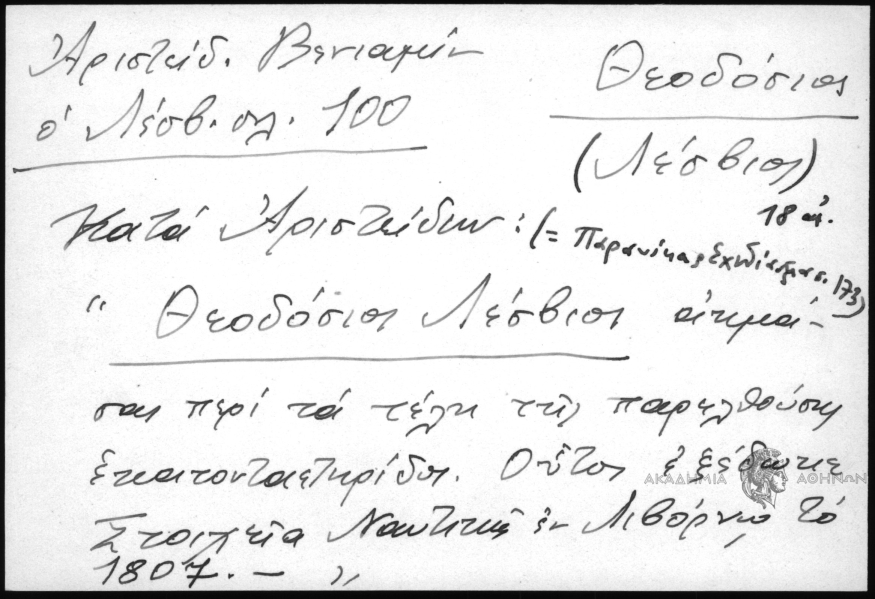 Ἀριστείδ. Βενιαμίν
ὁ Λέσβ. σλ. 100
Θεοδόσιος
(Λέσβιος)
18 αἰ.
Κατά Ἀριστείδην: (= Παρανίκας Σχεδίασμα σ. 173)
" Θεοδόσιος Λέσβιος ἀκμά-
σας περί τά τέλη τῆς παρελθούσης
ἑκατονταετηρίδος. Οὗτος ἐξέδωκε
Στοιχεῖα Ναυτικῆς ἐν Λιβόρνῳ τό
1807. — "
ΑΚΑΔΗΜΙΑ ΑΘΗΝΩΝ